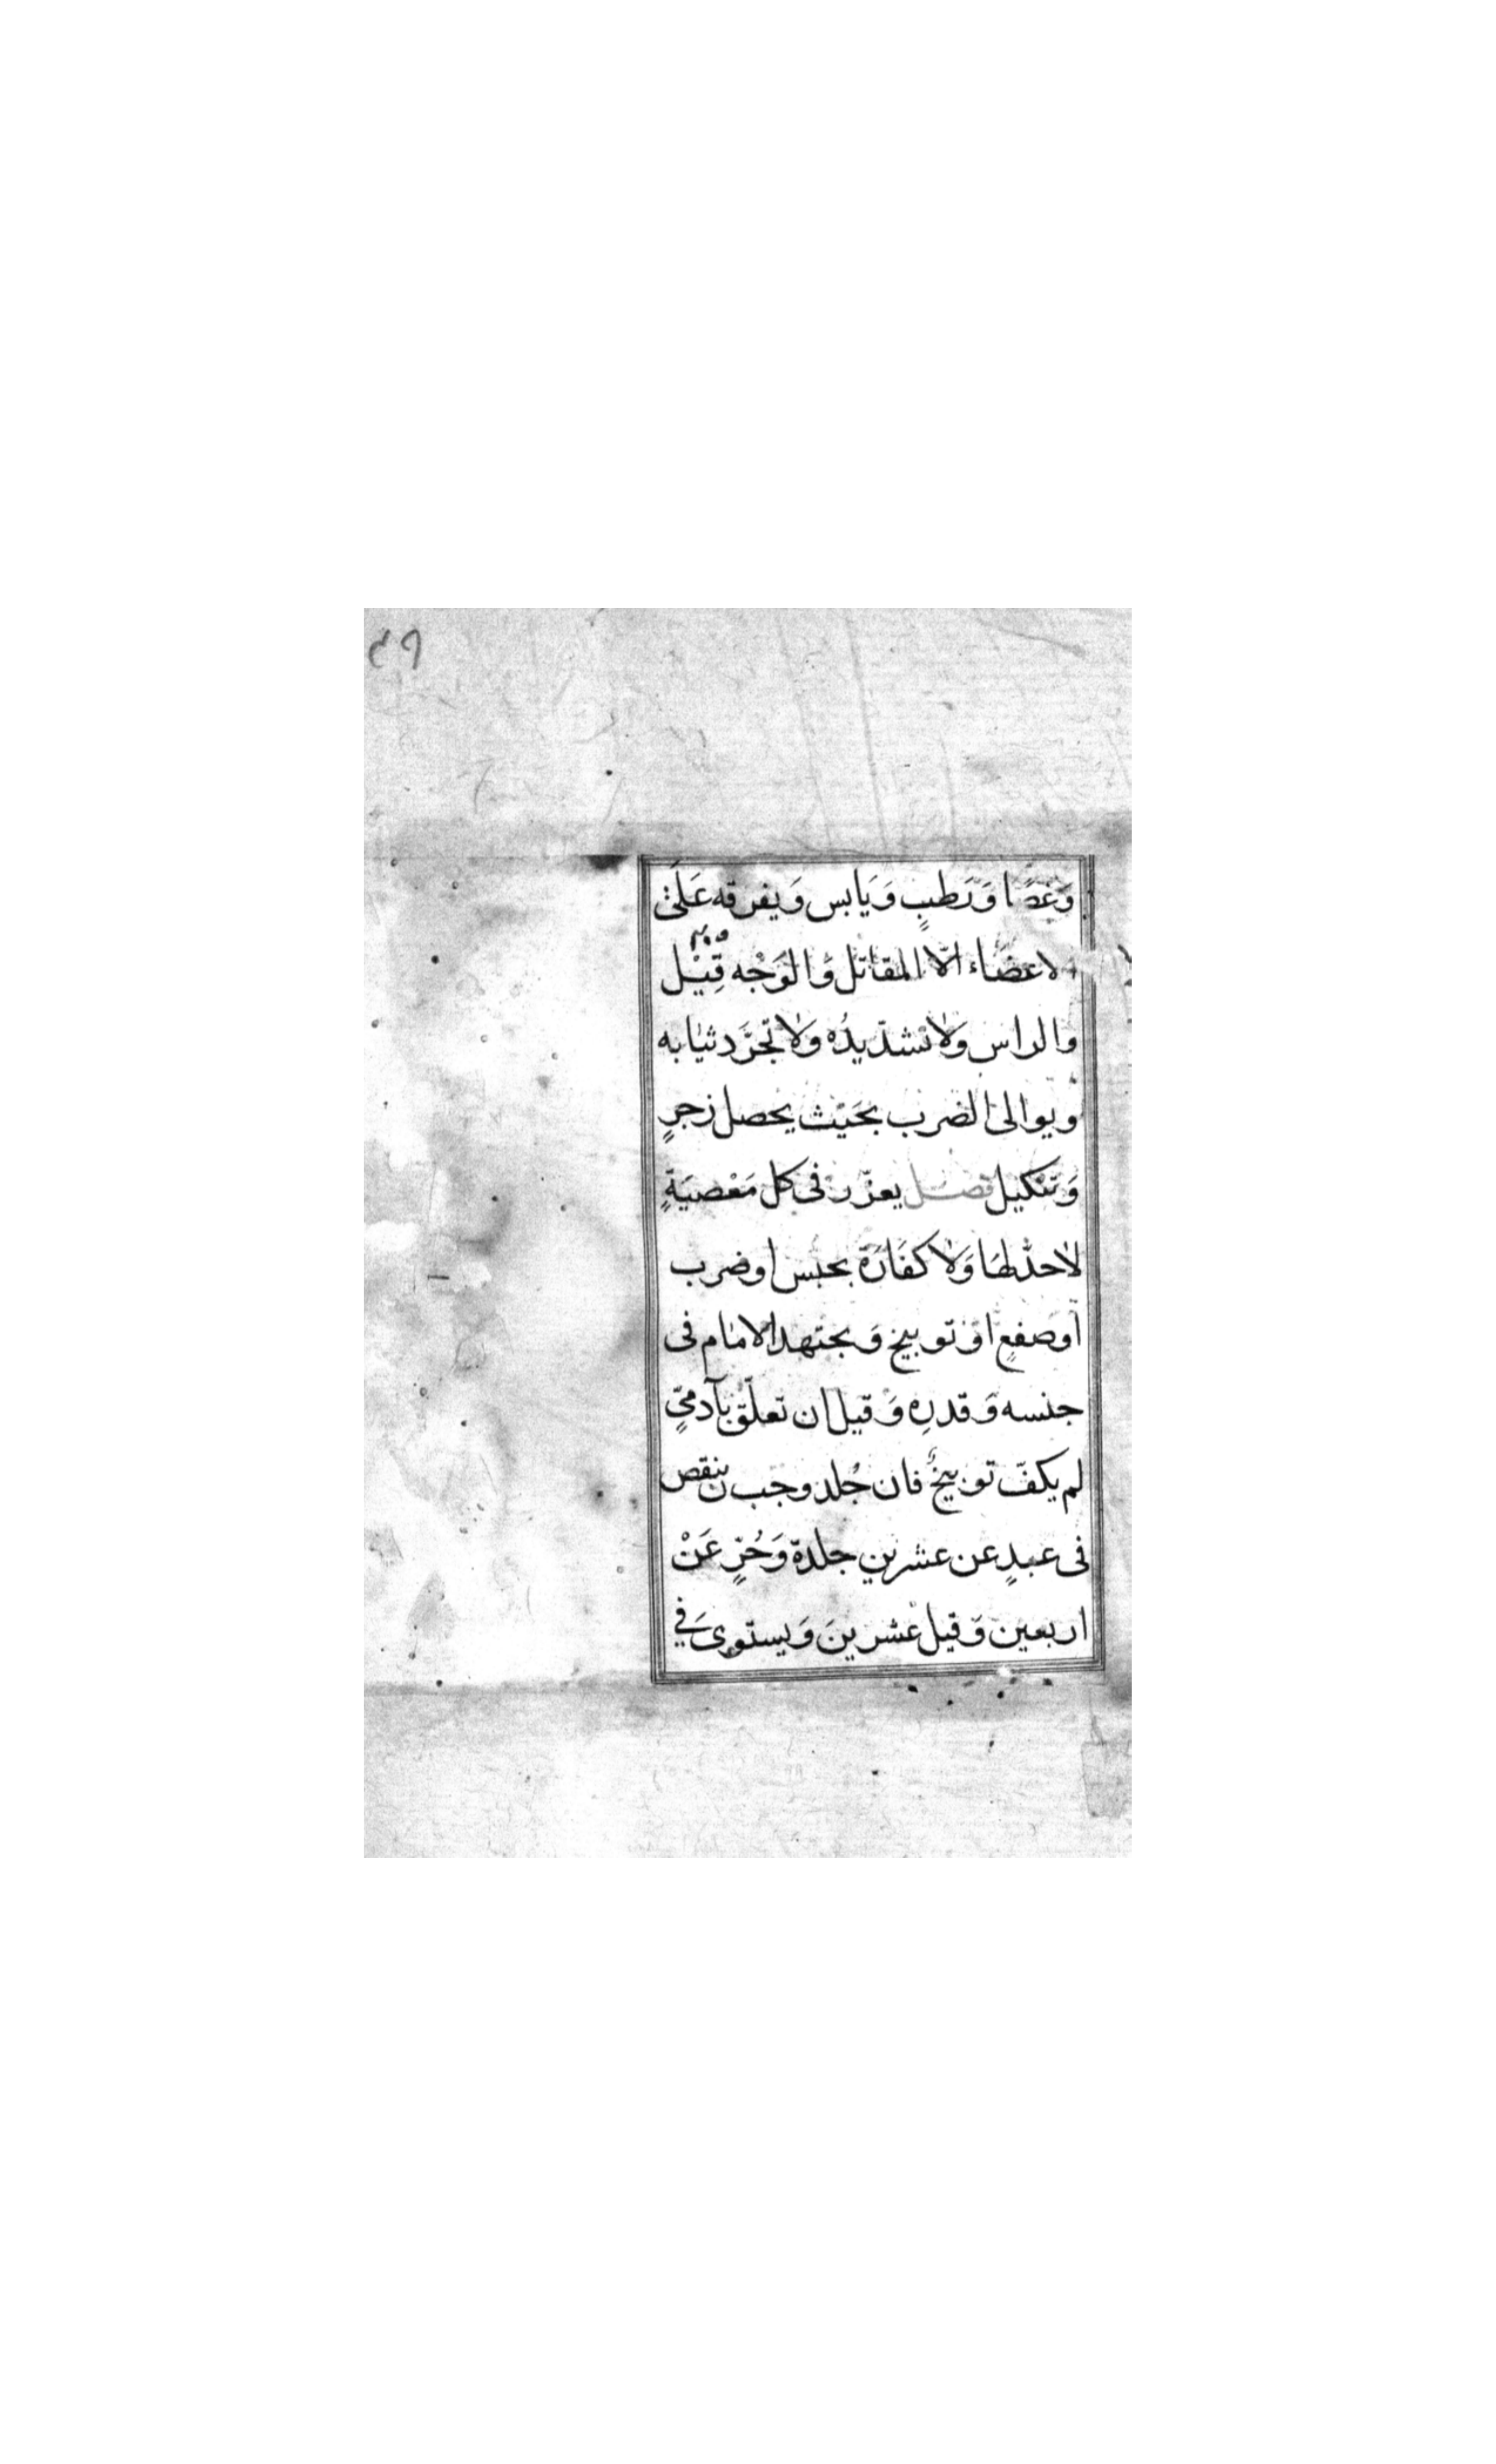 ٤٩
وَعَصًا وَرَطبٍ وَيَابس وَيفرقه عَلَى
الاعضَاء الّا المقاتل وَالوَجْه قِيْل
والراس وَلا تشدّ يدُه وَلا تجرَّد ثيابه
ويوالى الضرب بحَيْث يحصل زجرٍ
وَتنكيل فصل يعزّر فى كل مَعْصيَةٍ
لاحدّ لهَا وَلا كفَارَة بحبس او ضرب
او صفعٍ اوْ توبيخ وَيجتهد الامام فى
جنسه وَقدرِه وَقيل ان تعلّق بآدمىّ
لم يكفّ توبيخٌ فان جُلد وجَب ان ينقص
فى عبدٍ عن عشرين جلدة وَحُرٍّ عَنْ
اربعين وَقيل عشرينَ وَيستوى فى